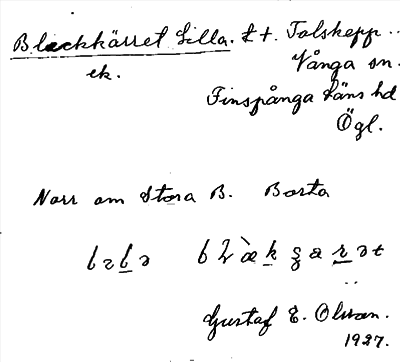 Bleckkärret Lilla. t. Tolskepp..
ek. Vånga sn.
Finspånga läns hd
Ögl.
Norr om Stora B. Borta
Gustaf E. Olsson.
1927.